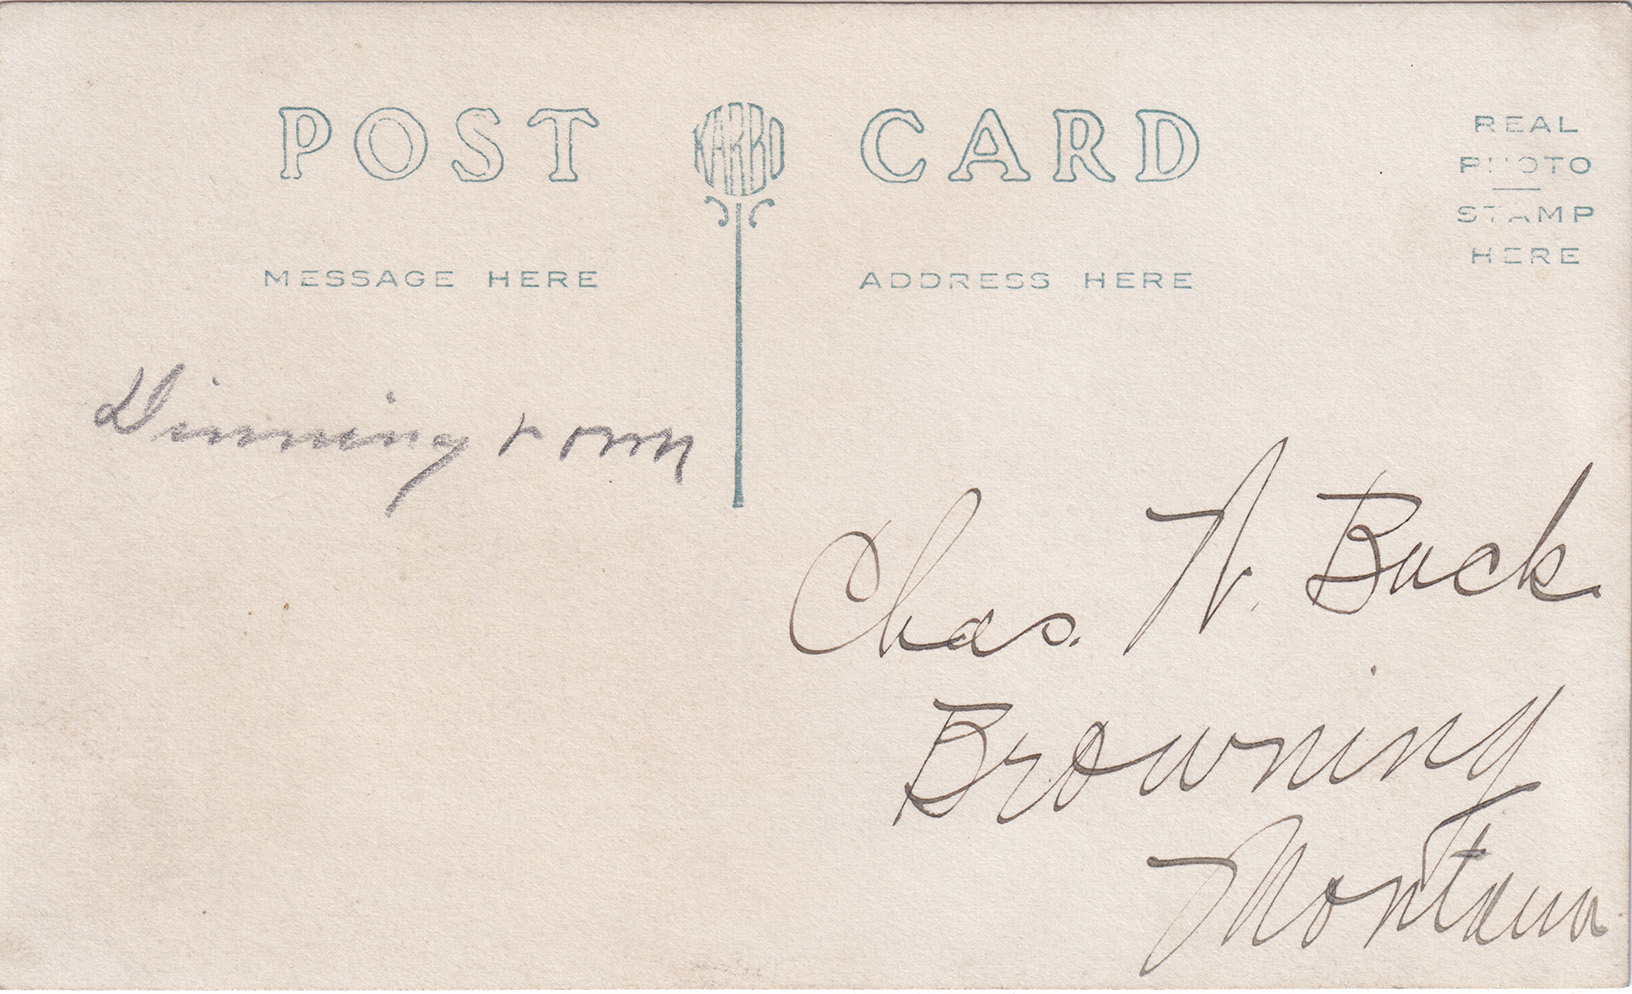 POST KARBO CARD
REAL
PHOTO
STAMP
HERE
MESSAGE HERE
ADDRESS HERE
Dinning room
Chas. N. Buck
Browning
Montana